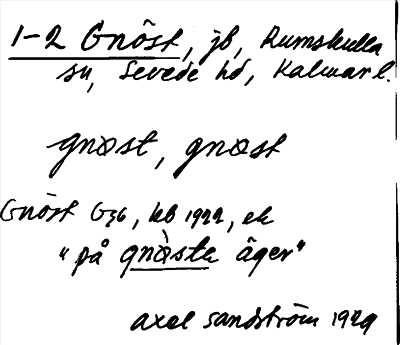 1-2 Gnöst, jb, Rumskulla
sn, Sevede hd, Kalmar l.
gnɷst, gnɷst
Gnöst G36, kb 1922, ek
"på gnòsta äger"
Axel Sandström 1929